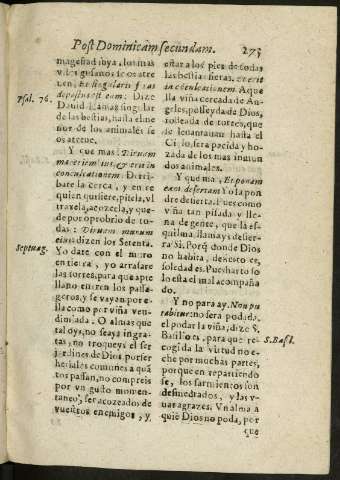 Post Dominicam secundam. 273
magestad suya, los mas
viles gusanos se os atre
ten, Et singularis ferus
depastus est eam: Dize
Psal. 76.
David. Llamas singular
de las bestias, hasta el me
nor de los animales se
os atreue.
Y que mas: Diruam
maceriem eius, & erit in
conculcationem. Derri-
bare la cerca, y en re
quien quisiere, pisela, vl
trajela, acozela, y que-
de por oprobrio de to-
dos: Diruam murum
Septuag.
eius, dizen los Setenta.
Yo dare con el muro
en tierra, yo arrasare
las torres, para que a pie
llano entren los passa-
geros, y se vayan por e-
lla como por viña ven-
dimiada. O almas que
tal oys, no seays ingra-
tas, no troqueys el ser
jardines de Dios por ser
heriales comunes a quã
tos passan, no compreis
por vn gusto momen-
taneo, ser acozeados de
vuestros enemigos, y
estar a los pies de todas
las bestias fieras. Et erit
in conculcationem. Aque
lla viña cercada de An-
geles, polleyda de Dios,
rodeada de torres, que
se leuantauan hasta el
Cielo, sera pacida y ho-
zada de los mas inmun
dos animales.
Y que mas, Et ponam
eam desertam. Yo la pon
dre desierta. Pues como
viña tan pisada y lle-
na de gente, que la es-
quilma, llamays desier-
ra? Si. Porq̃ donde Dios
no habita, desierto es,
soledad es. Pues harto so
lo està el mal acompaña
do.
Y no para ay. Non pu
tabitur: no sera podada.
el podar la viña, dize S.
S. Basil.
Basilio es, para que re-
cogida la virtud no e-
che por muchas partes,
porque en repartiendo
se, los sarmientos son
desmedrados, y las v-
uas agrazes. Vn alma a
quiẽ Dios no poda, por
que